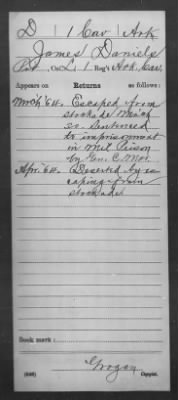 D 1 Cav Ark
James Daniels
Pvt, Co. L, 1 Reg't Ark. Cav.
Appears on Returns as follows:
Mrch '64. Escaped from
stockade March
20. Sentenced
to imprisonment
in Mil. Prison
by Gen. C. Mar.
Apr. '64. Deserted by es
caping from
stockade
Book mark:
Grogan
Copyist.